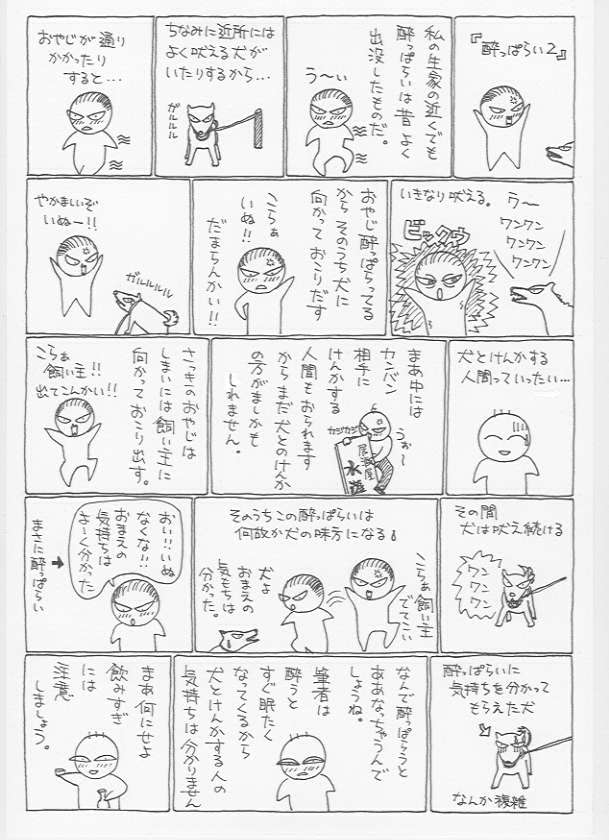 『酔っぱらい2』
私の生家の近くでも
酔っぱらいは昔よく
出没したものだ。
う〜い
ちなみに近所には
よく吠える犬が
いたりするから…
ガルルル
おやじが通り
かかったり
すると…
いきなり吠える。
う〜
ワンワン
ワンワン
ワンワン
ビックウ
おやじ酔っぱらってる
からそのうち犬に
向かっておこりだす
こらぁ
いぬ!!
だまらんかい!!
やかましいぞ
いぬー!!
ガルルルル
犬とけんかする
人間っていったい…
まあ中には
カンバン
相手に
けんかする
人間もおられます
からまだ犬とのけんか
の方がましかも
しれません。
うぉ〜
カジカジ
居酒屋
水道
さっきのおやじは
しまいには飼い主に
向かっておこり出す。
こらぁ
飼い主!!
出てこんかい!!
その間
犬は吠え続ける
ワン
ワン
ワン
そのうちこの酔っぱらいは
何故か犬の味方になる!
こらぁ飼い主
でてこい
犬よ
おまえの
気もちは
分かった。
おい!!いぬ
なくな!!
おまえの
気持ちは
よーく分かった
まさに酔っぱらい
酔っぱらいに
気持ちを分かって
もらえた犬
なんか複雑
なんで酔っぱらうと
ああなっちゃうんで
しょうね。
筆者は
酔うと
すぐ眠たく
なってくるから
犬とけんかする人の
気持ちは分かりません
まあ何にせよ
飲みすぎ
には
注意
しましょう。